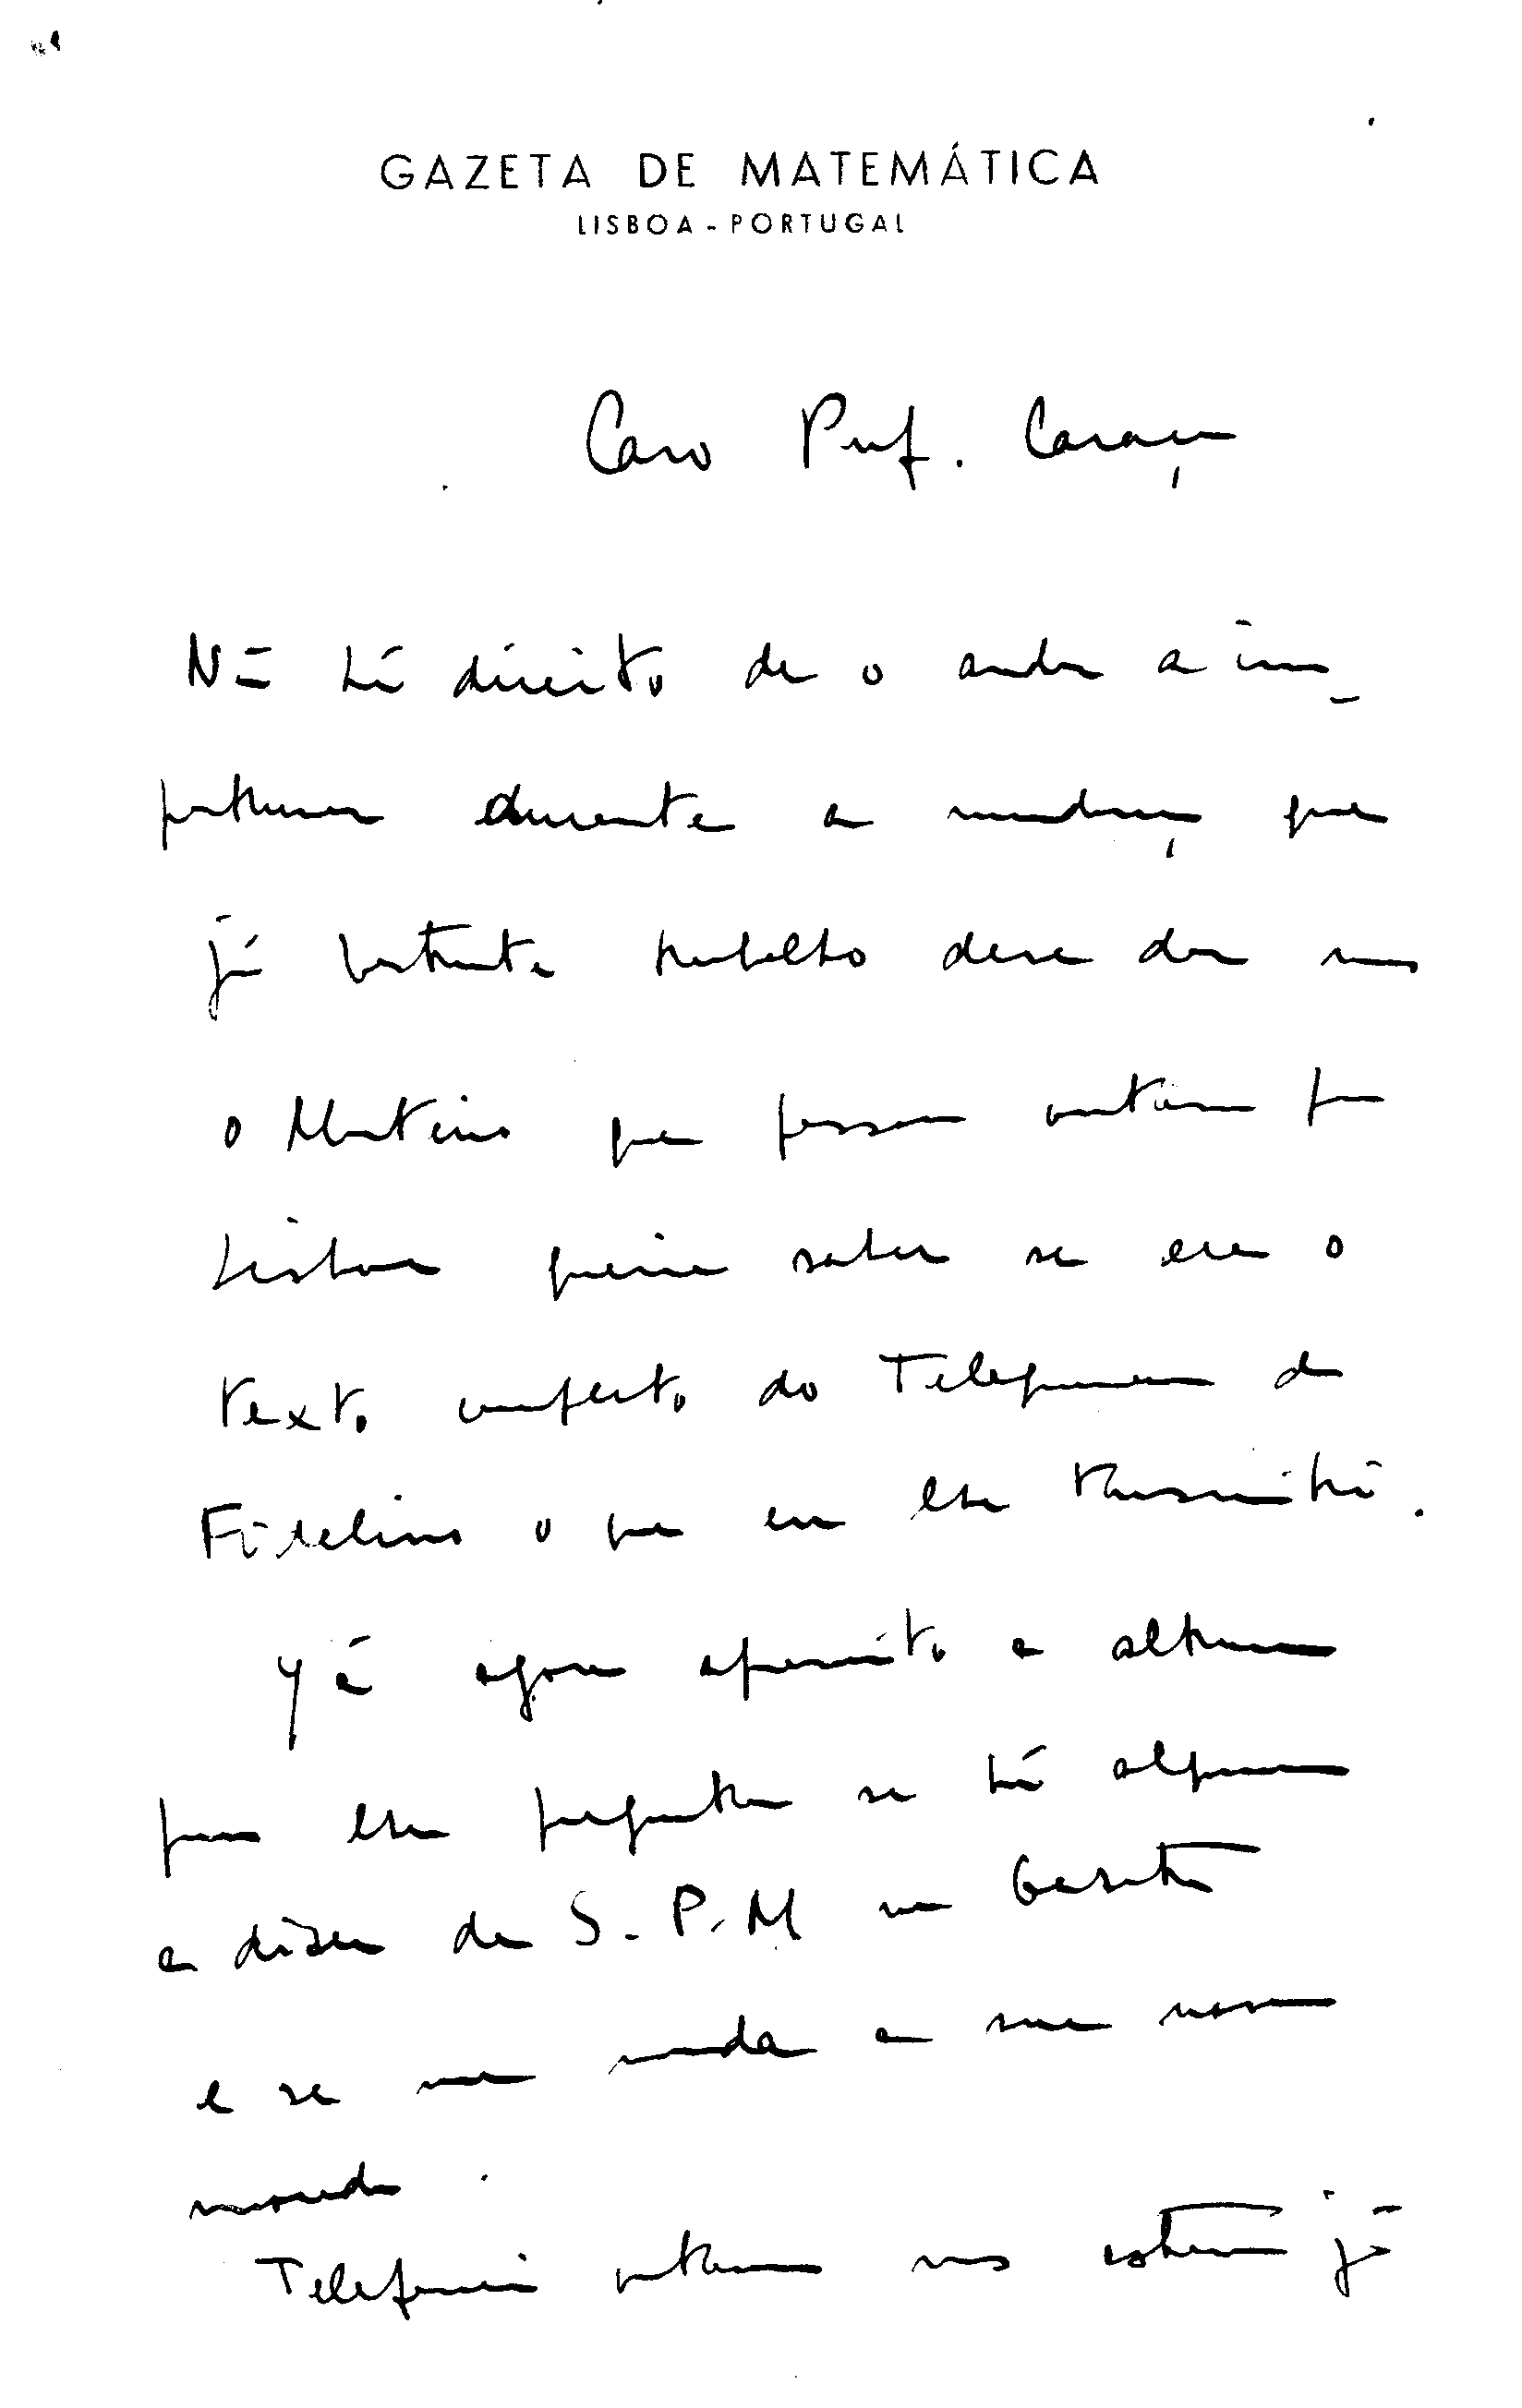 GAZETA DE MATEMÁTICA
LISBOA - PORTUGAL
Caro Prof. Caraça
Não há direito de o andar a im-
portunar durante a mudança que
já bastante trabalho deve dar mas
o Monteiro que passou ontem por
Lisboa queria saber se era o
texto completo do Telegrama do
Fidelino o que eu lhe transmiti.
Já agora aproveito a altura
para lhe perguntar se há alguma
a dizer da S.P.M na Gazeta
e se me manda a sua nova
morada.
Telefonei ontem mas estava já